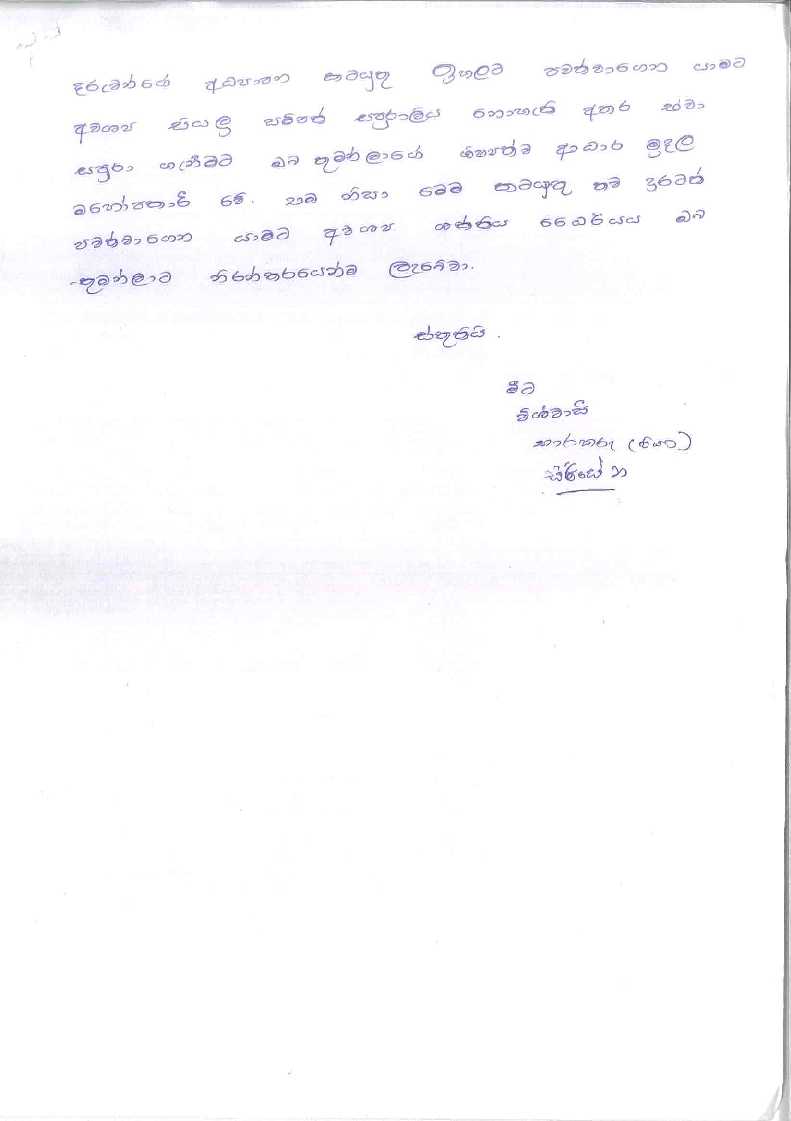 දරුවන්ගේ අධ්‍යාපන කටයුතු ඉහලට පවත්වාගෙන යාමට
අවශ්‍ය සියලු සම්පත් සපුරාලිය නොහැකි අතර ඒවා
සපුරා ගැනීමට ඔබ තුමන්ලාගේ ශිෂ්‍යත්ව ආධාර මුදල
මහෝපකාරී වේ. එබ නිසා මෙම කටයුතු තව දුරටත්
පවත්වාගෙන යාමට අවශ්‍ය ශක්තිය ධෛර්යය ඔබ
තුමන්ලාට නිරන්තරයෙන්ම ලැබේවා.
ස්තුතියි.
මීට
විශ්වාසී
භාරකරු (පියා)
සිරිසේන